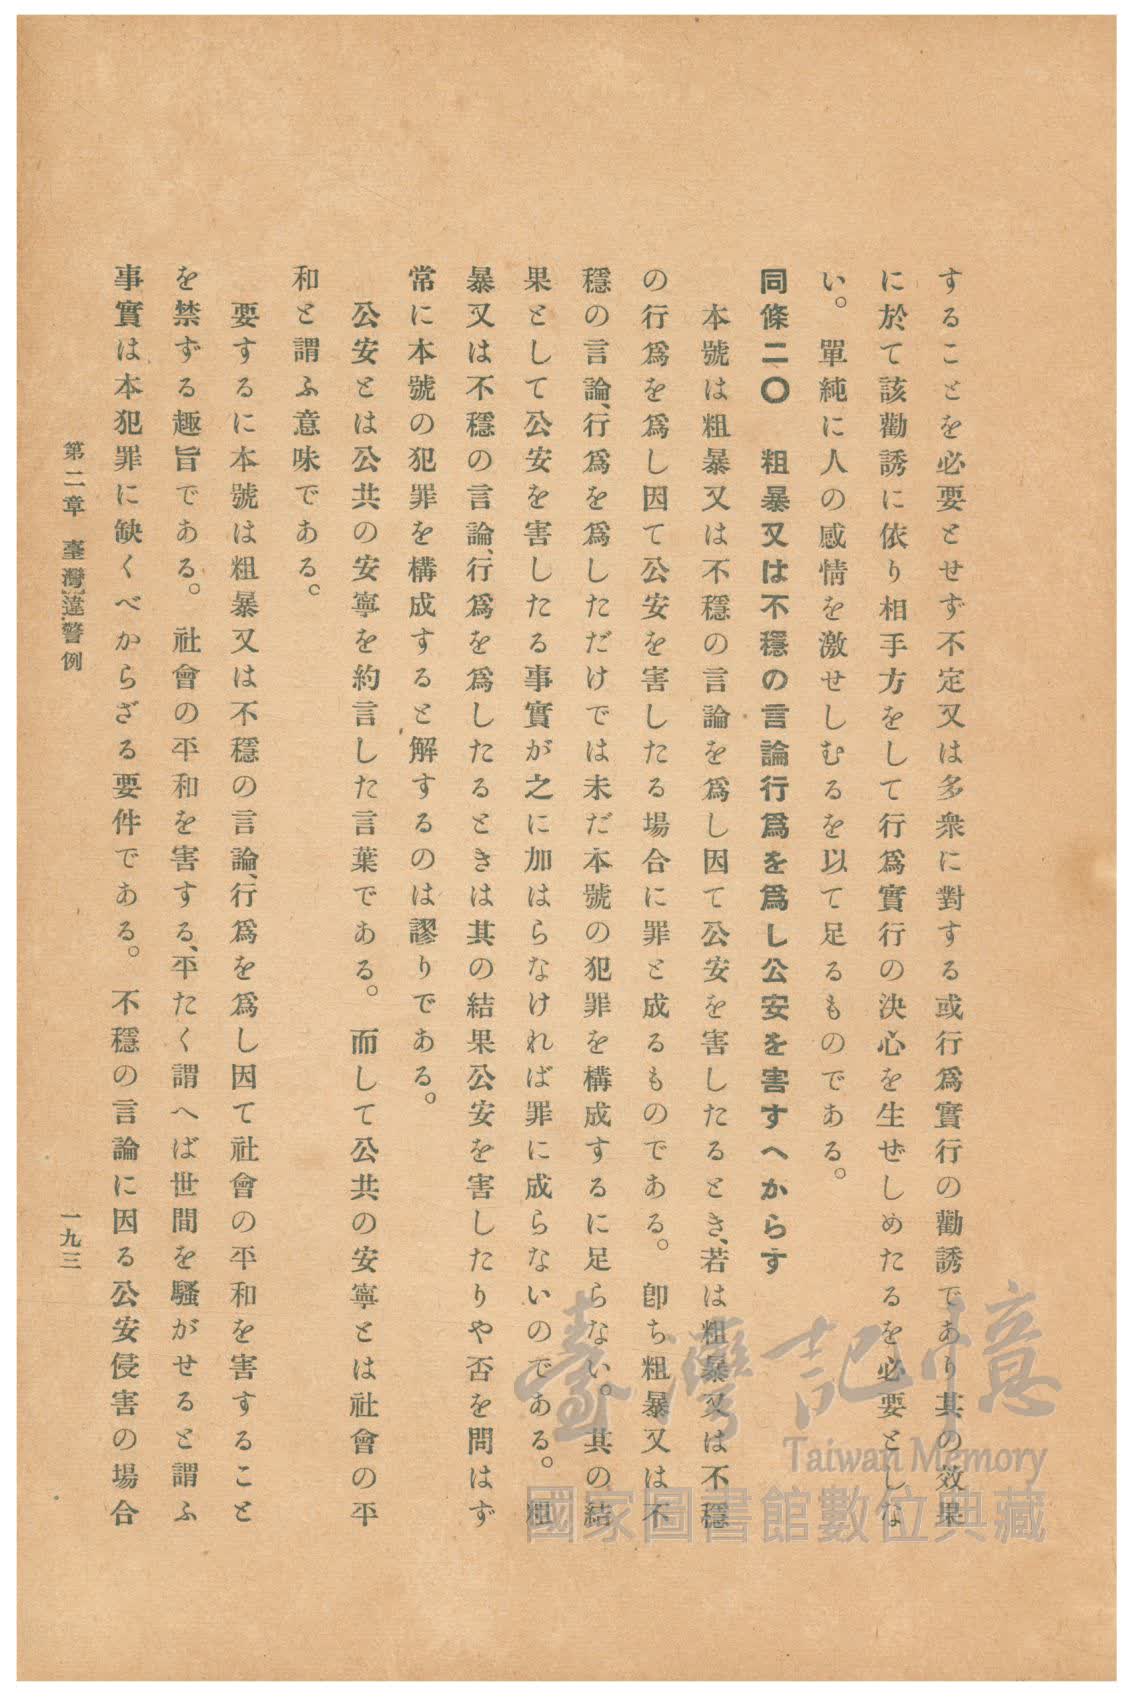 することを必要とせず不定又は多衆に對する或行爲實行の勸誘であり其の效果
に於て該勸誘に依り相手方をして行爲實行の決心を生ぜしめたるを必要としな
い。單純に人の感情を激せしむるを以て足るものである。
同條二〇 粗暴又は不穩の言論行爲を爲し公安を害すへからす
本號は粗暴又は不穩の言論を爲し因て公安を害したるとき、若は粗暴又は不穩
の行爲を爲し因て公安を害したる場合に罪と成るものである。卽ち粗暴又は不
穩の言論、行爲を爲しただけでは未だ本號の犯罪を構成するに足らない。其の結
果として公安を害したる事實が之に加はらなければ罪に成らないのである。粗
暴又は不穩の言論、行爲を爲したるときは其の結果公安を害したりや否を問はず
常に本號の犯罪を構成すると解するのは謬りである。
公安とは公共の安寧を約言した言葉である。而して公共の安寧とは社會の平
和と謂ふ意味である。
要するに本號は粗暴又は不穩の言論、行爲を爲し因て社會の平和を害すること
を禁ずる趣旨である。社會の平和を害する、平たく謂へば世間を騷がせると謂ふ
事實は本犯罪に缺くべからざる要件である。不穩の言論に因る公安侵害の場合
第二章 臺灣違警例
一九三
臺灣記憶
Taiwan Memory
國家圖書館數位典藏